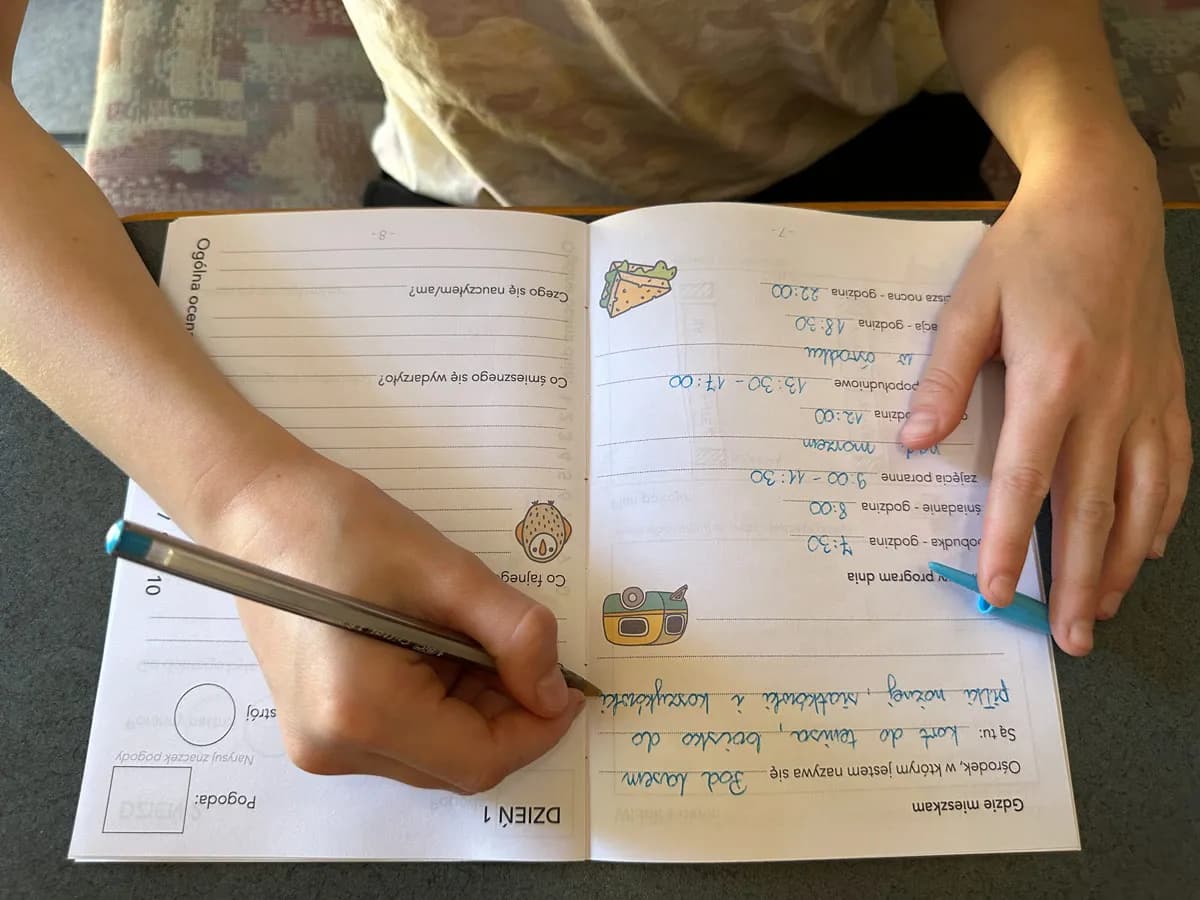 Gdzie mieszkam
Ośrodek, w którym jestem nazywa się Pod Lasem
Są tu: kort do tenisa, boisko do
piłki nożnej, siatkówki i koszykówki
program dnia
obudka - godzina 7:30
śniadanie - godzina 8:00
zajęcia poranne 9:00 - 11:30
nad morzem
12:00
popołudniowe 13:30 - 17:00
w ośrodku
acja - godzina 18:30
cisza nocna - godzina 22:00
-7-
DZIEŃ 1
Pogoda:
Narysuj znaczek pogody
strój
10
Co fajneg
Co śmiesznego się wydarzyło?
Czego się nauczyłem/am?
Ogólna ocen
-8-